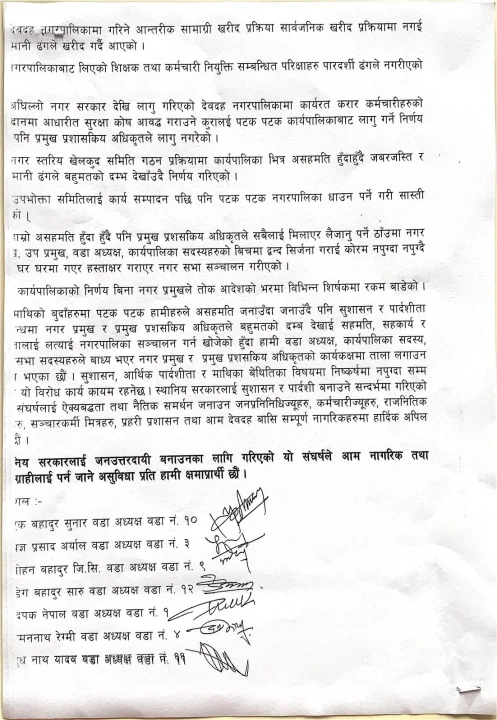 देवदह नगरपालिकामा गरिने आन्तरीक सामाग्री खरीद प्रक्रिया सार्वजनिक खरीद प्रक्रियामा नगई
मानी ढंगले खरीद गर्दै आएको ।
गरपालिकाबाट लिएको शिक्षक तथा कर्मचारी नियुक्ति सम्बन्धित परिक्षाहरु पारदर्शी ढंगले नगरीएको
अघिल्लो नगर सरकार देखि लागु गरिएको देवदह नगरपालिकामा कार्यरत करार कर्मचारीहरुको
दानमा आधारीत सुरक्षा कोष आवद्ध गराउने कुरालाई पटक पटक कार्यपालिकाबाट लागु गर्ने निर्णय
पनि प्रमुख प्रशासकिय अधिकृतले लागु नगरेको ।
नगर स्तरिय खेलकुद समिति गठन प्रक्रियामा कार्यपालिका भित्र असहमति हुँदाहुँदै जबरजस्ति र
मानी ढंगले बहुमतको दम्भ देखाँउदै निर्णय गरिएको ।
उपभोक्ता समितिलाई कार्य सम्पादन पछि पनि पटक पटक नगरपालिका धाउन पर्ने गरी सास्ती
को ।
हाम्रो असहमति हुँदा हुँदै पनि प्रमुख प्रशसकिय अधिकृतले सबैलाई मिलाएर लैजानु पर्ने ठाँउमा नगर
, उप प्रमुख, वडा अध्यक्ष, कार्यपालिका सदस्यहरुको बिचमा द्वन्द सिर्जना गराई कोरम नपुग्दा नपुग्दै
घर घरमा गएर हस्ताक्षर गराएर नगर सभा सञ्चालन गरीएको ।
कार्यपालिकाको निर्णय बिना नगर प्रमुखले तोक आदेशको भरमा विभिन्न शिर्षकमा रकम बाडेको ।
माथिको बुदाँहरुमा पटक पटक हामीहरुले असहमति जनाउँदा जनाउँदै पनि सुशासन र पार्दशीता
न्धमा नगर प्रमुख र प्रमुख प्रशसकिय अधिकृतले बहुमतको दम्ब देखाई सहमति, सहकार्य र
लाई लत्याई नगरपालिका सञ्चालन गर्न खोजेको हुँदा हामी वडा अध्यक्ष, कार्यपालिका सदस्य,
सभा सदस्यहरुले बाध्य भएर नगर प्रमुख र प्रमुख प्रशसकिय अधिकृतको कार्यकक्षमा ताला लगाउन
भएका छौं । सुशासन, आर्थिक पार्दशीता र माथिका बेथितिका विषयमा निष्कर्षमा नपुग्दा सम्म
यो विरोध कार्य कायम रहनेछ । स्थानिय सरकारलाई सुशासन र पार्दशी बनाउने सन्दर्भमा गरिएको
संघर्षलाई ऐक्यबद्धता तथा नैतिक समर्थन जनाउन जनप्रनिनिधिज्यूहरु, कर्मचारीज्यूहरु, राजनितिक
रु, सञ्चारकर्मी मित्रहरु, प्रहरी प्रशासन तथा आम देवदह बासि सम्पूर्ण नागरिकहरुमा हार्दिक अपिल
छौं ।
निय सरकारलाई जनउत्तरदायी बनाउनका लागि गरिएको यो संघर्षले आम नागरिक तथा
ग्राहीलाई पर्न जाने असुबिधा प्रति हामी क्षमाप्रार्थी छौं ।
:-
क बहादुर सुनार वडा अध्यक्ष वडा नं. १०
प्रसाद अर्याल वडा अध्यक्ष वडा नं. ३
मोहन बहादुर जि.सि. वडा अध्यक्ष वडा नं. ९
बहादुर सारु वडा अध्यक्ष वडा नं. १२
दिपक नेपाल वडा अध्यक्ष वडा नं. १
मननाथ रेग्मी वडा अध्यक्ष वडा नं. ४
नाथ यादव वडा अध्यक्ष वडा नं. ११